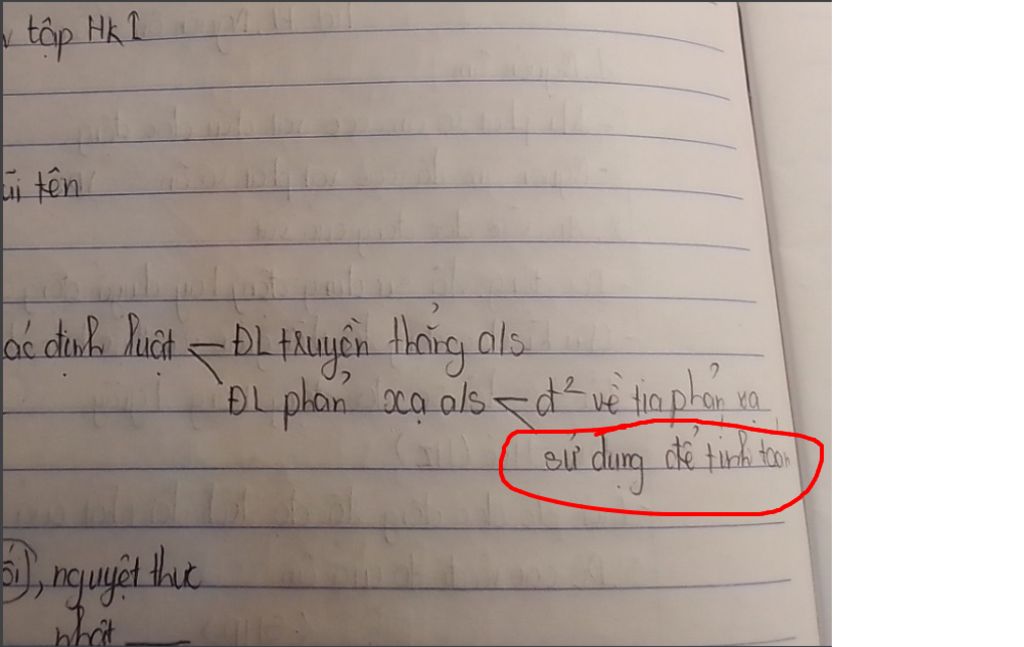 tập HkI
ũi tên
ác định luật ĐL truyền thẳng a/s
ĐL phản xạ a/s đ² vẽ tia phản xạ
sử dụng để tính toán
ối), nguyệt thực
nhật